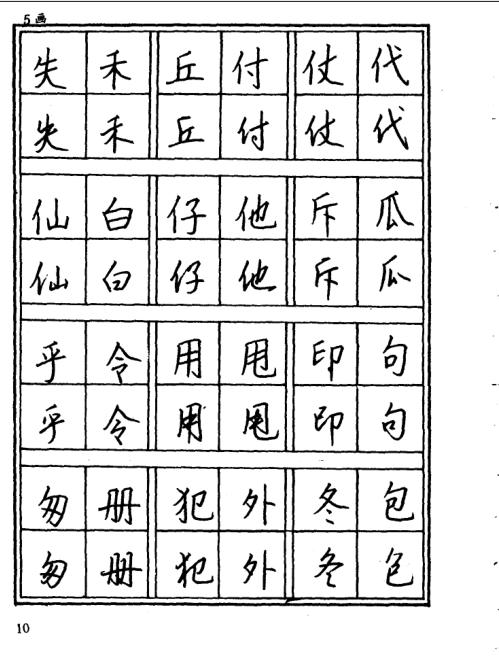 5画
失 禾 丘 付 仗 代
失 禾 丘 付 仗 代
仙 白 仔 他 斥 瓜
仙 白 仔 他 斥 瓜
乎 令 用 甩 印 句
乎 令 用 甩 印 句
匆 册 犯 外 冬 包
匆 册 犯 外 冬 包
10